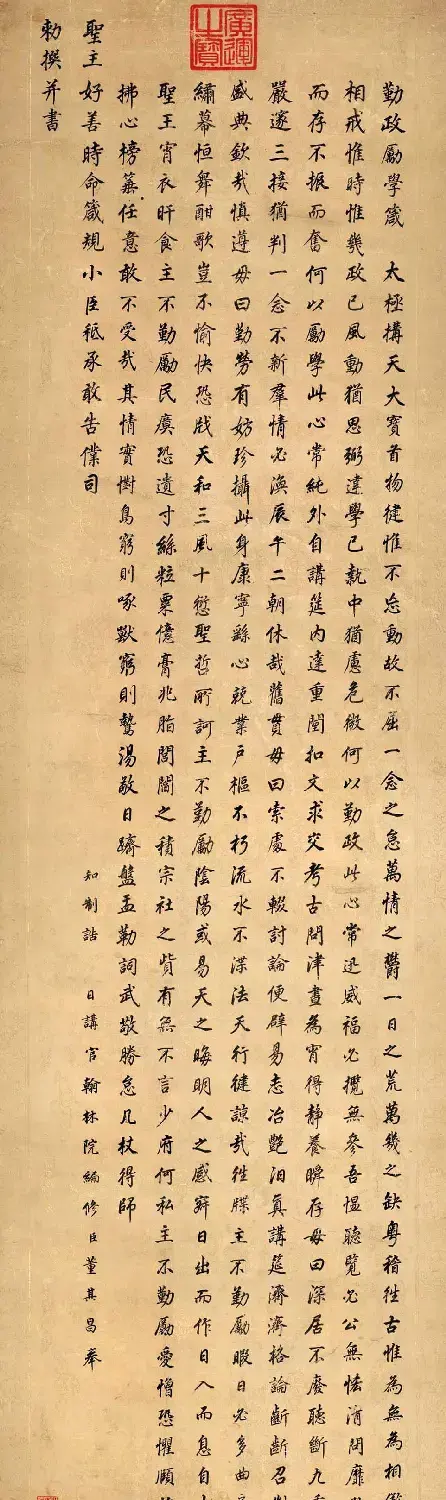 廣運之寶
勤政勵學箴 太極搆天大寶首物健惟不息動故不屈一念之怠萬情之鬱一日之荒萬幾之缺粵稽往古惟為無為相儆
相戒惟時惟幾政已風動猶思弼違學已執中猶慮危微何以勤政此心常迅威福必攬無參吾慍聽覽必公無怯清問靡
而存不振而奮何以勵學此心常純外自講筵內達重闈扣文求交考古問津晝為宵得靜養瞬存毋曰深居不廢聽斷九
嚴邃三接猶判一念不新羣情必渙辰午二朝休哉舊貫毋曰索處不輟討論便辟易志冶艷汩真講筵濟濟格論齗齗召
盛典欽哉慎遵毋曰勤勞有妨珍攝此身康寧繇心兢業戶樞不朽流水不渫法天行健諒哉往牒主不勤勵暇日必多曲
繡幕恒舞酣歌豈不愉快恐戕天和三風十愆聖哲所訶主不勤勵陰陽或易天之晦明人之感寤日出而作日入而息自
聖王宵衣旰食主不勤勵民虞恐遺寸絲粒粟億膏兆脂閭閻之積宗社之貲有無不言少府何私主不勤勵愛憎恐懼願
拂心榜箠任意敢不受哉其情實懟鳥窮則啄獸窮則鷙湯敬日躋盤盂勒詞武敬勝怠几杖得師
聖主好善時命箴規小臣秪承敢告僕司 知制誥 日講官翰林院編修臣董其昌奉
勅撰并書